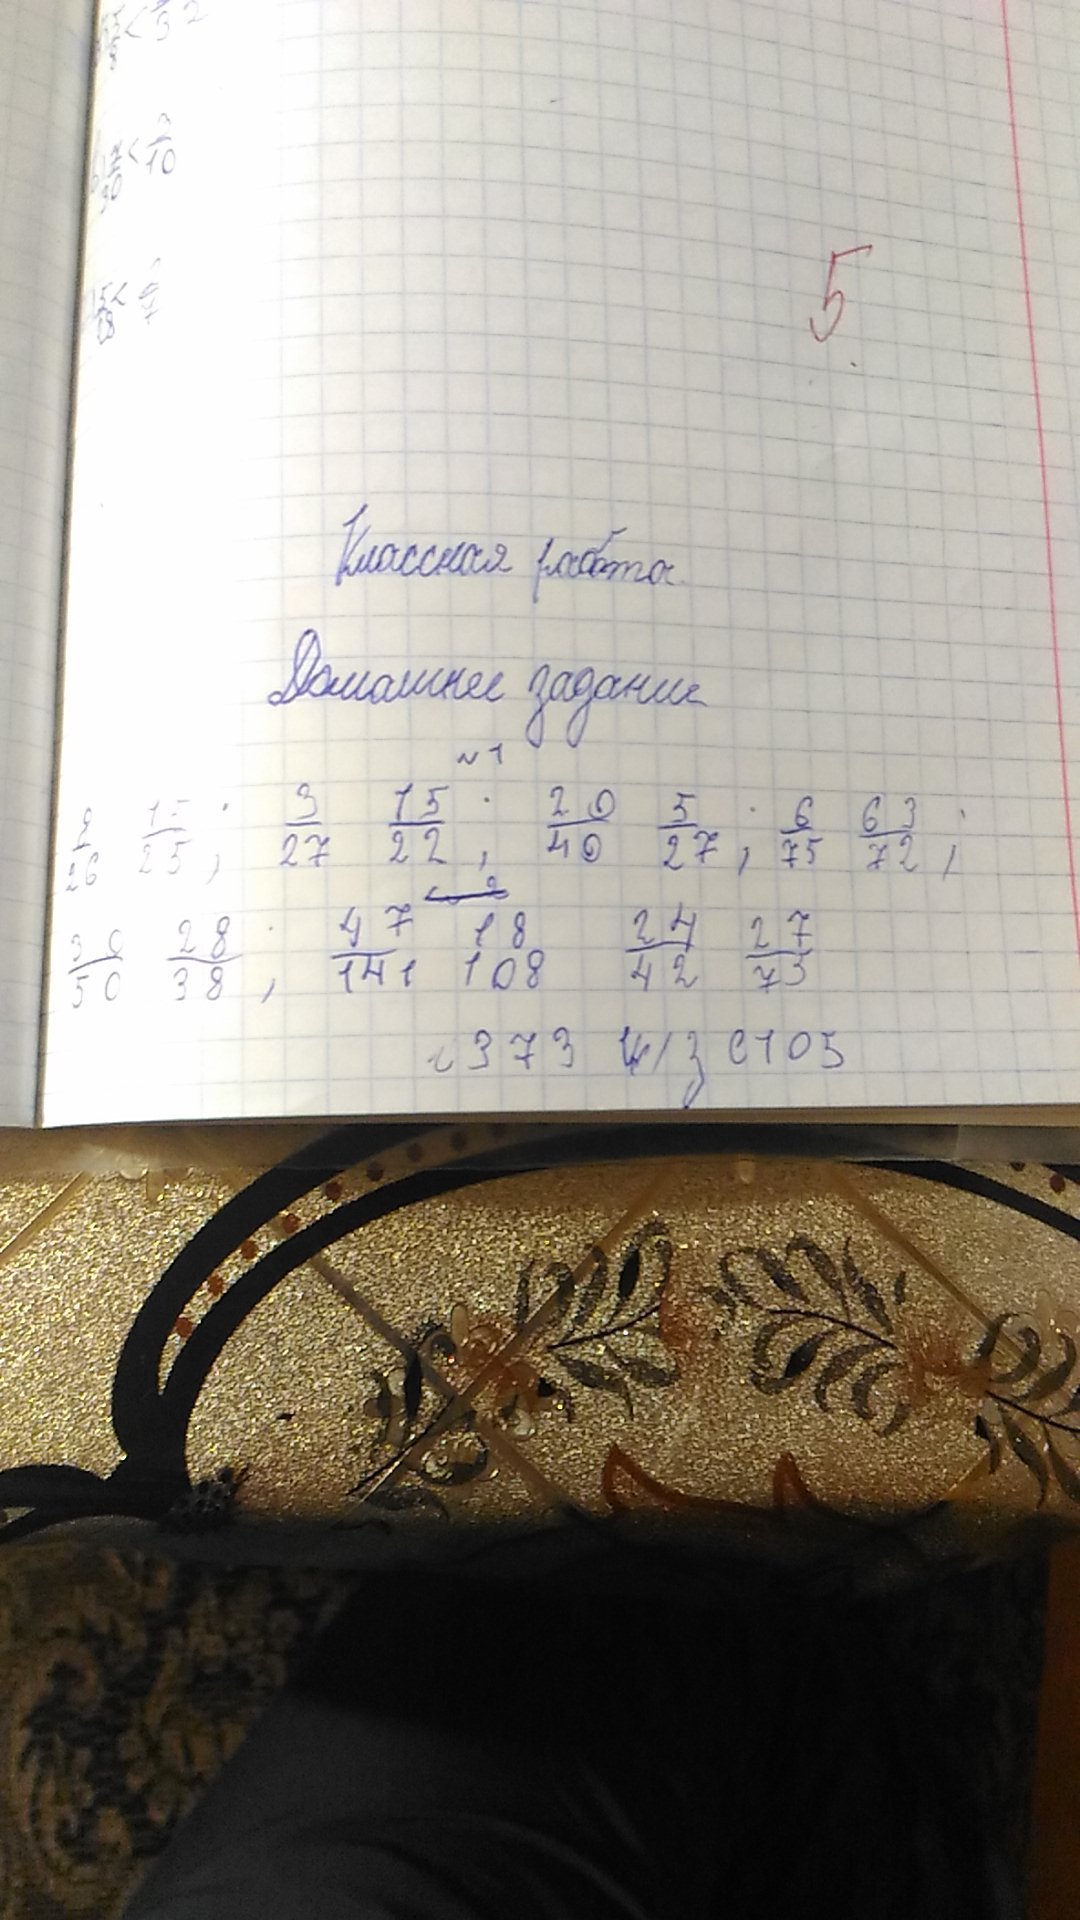 < 32
30 < 3/10
< 7
5
Классная работа.
Домашнее задание
№1
2/26 15/25; 3/27 15/22; 20/40 5/27; 6/75 63/72;
30/50 28/38; 47/141 18/108 24/42 27/73
№373 С105